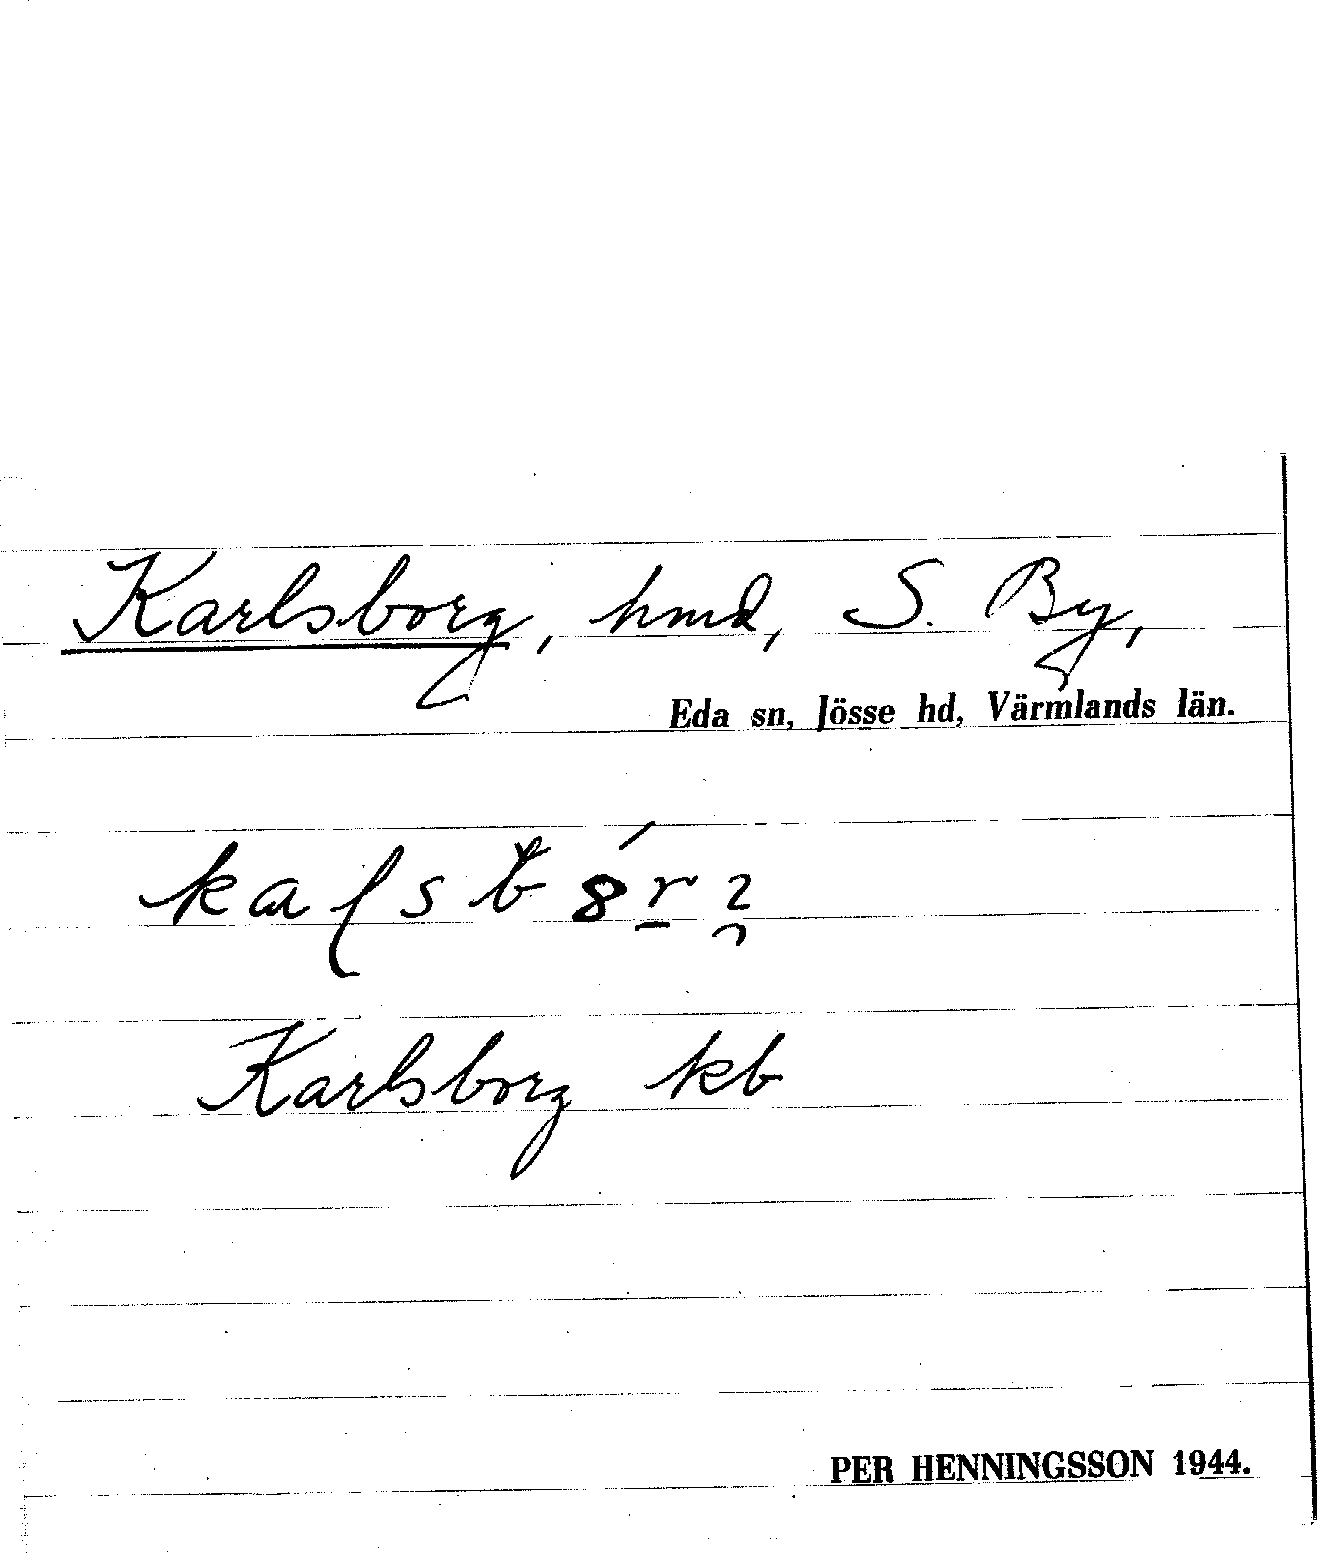 Karlsborg, hmd, S. By,
Eda sn, Jösse hd, Värmlands län.
Karlsborg kb
PER HENNINGSSON 1944.